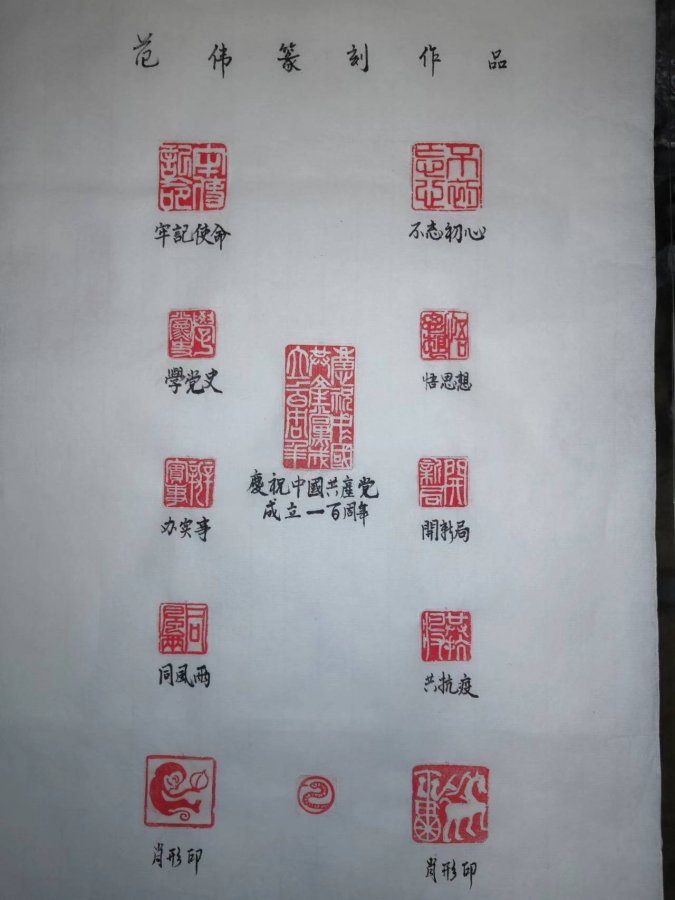 范伟篆刻作品
不忘初心
牢記使命
悟思想
學党史
慶祝中國共產党
成立一百周年
開新局
办实事
共抗疫
同風雨
肖形印
肖形印